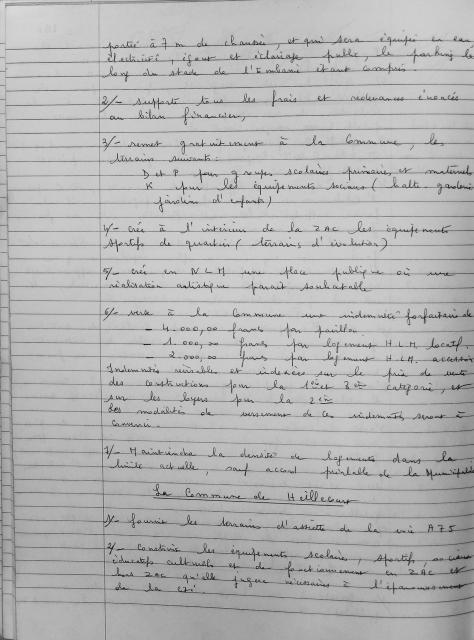 portée à 7 m de chaussée, et qui sera équipée en eau
électricité, égout et éclairage public, le parking le
long du stade de l'Embanie étant compris.
2/- supporte tous les frais et redevances énoncés
au bilan financier,
3/- remet gratuitement à la Commune, les
terrains suivants:
D et P pour groupes scolaires primaires et maternels
K pour les équipements sociaux (halte-garderie
jardins d'enfants)
4/- crée à l'intérieur de la ZAC les équipements
sportifs de quartier (terrains d'évolution)
5/- crée en NLM une place publique où une
réalisation artistique paraît souhaitable
6/- verse à la Commune une indemnité forfaitaire de
- 4.000,00 francs par pavillon
- 1.000,00 francs par logement H.L.M. locatif.
- 2.000,00 francs par logement H.L.M. accession
Indemnités révisables et indexées sur le prix de vente
des constructions pour la 1ère et 3è catégorie, et
sur les loyers pour la 2è
Les modalités de versement de ces indemnités seront à
convenir.
7/- Maintiendra la densité de logements dans la
limite actuelle, sauf accord préalable de la Municipalité
La Commune de Heillecourt
1/- fournit les terrains d'assiette de la voie A75
2/- Construit les équipements scolaires, sportifs,
éducatifs culturels et de fonctionnement en ZAC et
hors ZAC qu'elle jugera nécessaires à l'épanouissement
de la cité